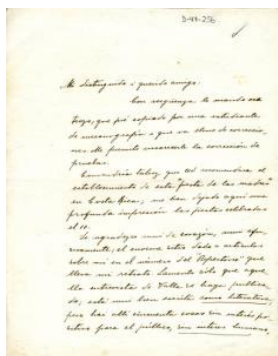 D-44-256
Mi distinguido i querido amigo:
Con vergüenza le mando esa
hoja, que fué copiada por una estudiante
de mecanografía i que va llena de
nes. Me permito la corrección de
pruebas.
Comprendía Ud. que recomendara el
establecimiento de esta "fiesta de las madres"
en Costa Rica; me han dejado aquí una
profunda impresión las fiestas celebradas
el 10.
Le agradezco mui de corazón, mui
el enorme
sobre mi en el número del "Repertorio" que
lleva mi retrato. Lamento sólo que
lla entrevista de Valle se haya publica-
do; está mui bien escrita como literatura,
pero hai allí cosas sin interés po-
sitivo para el público, sin interés humano,